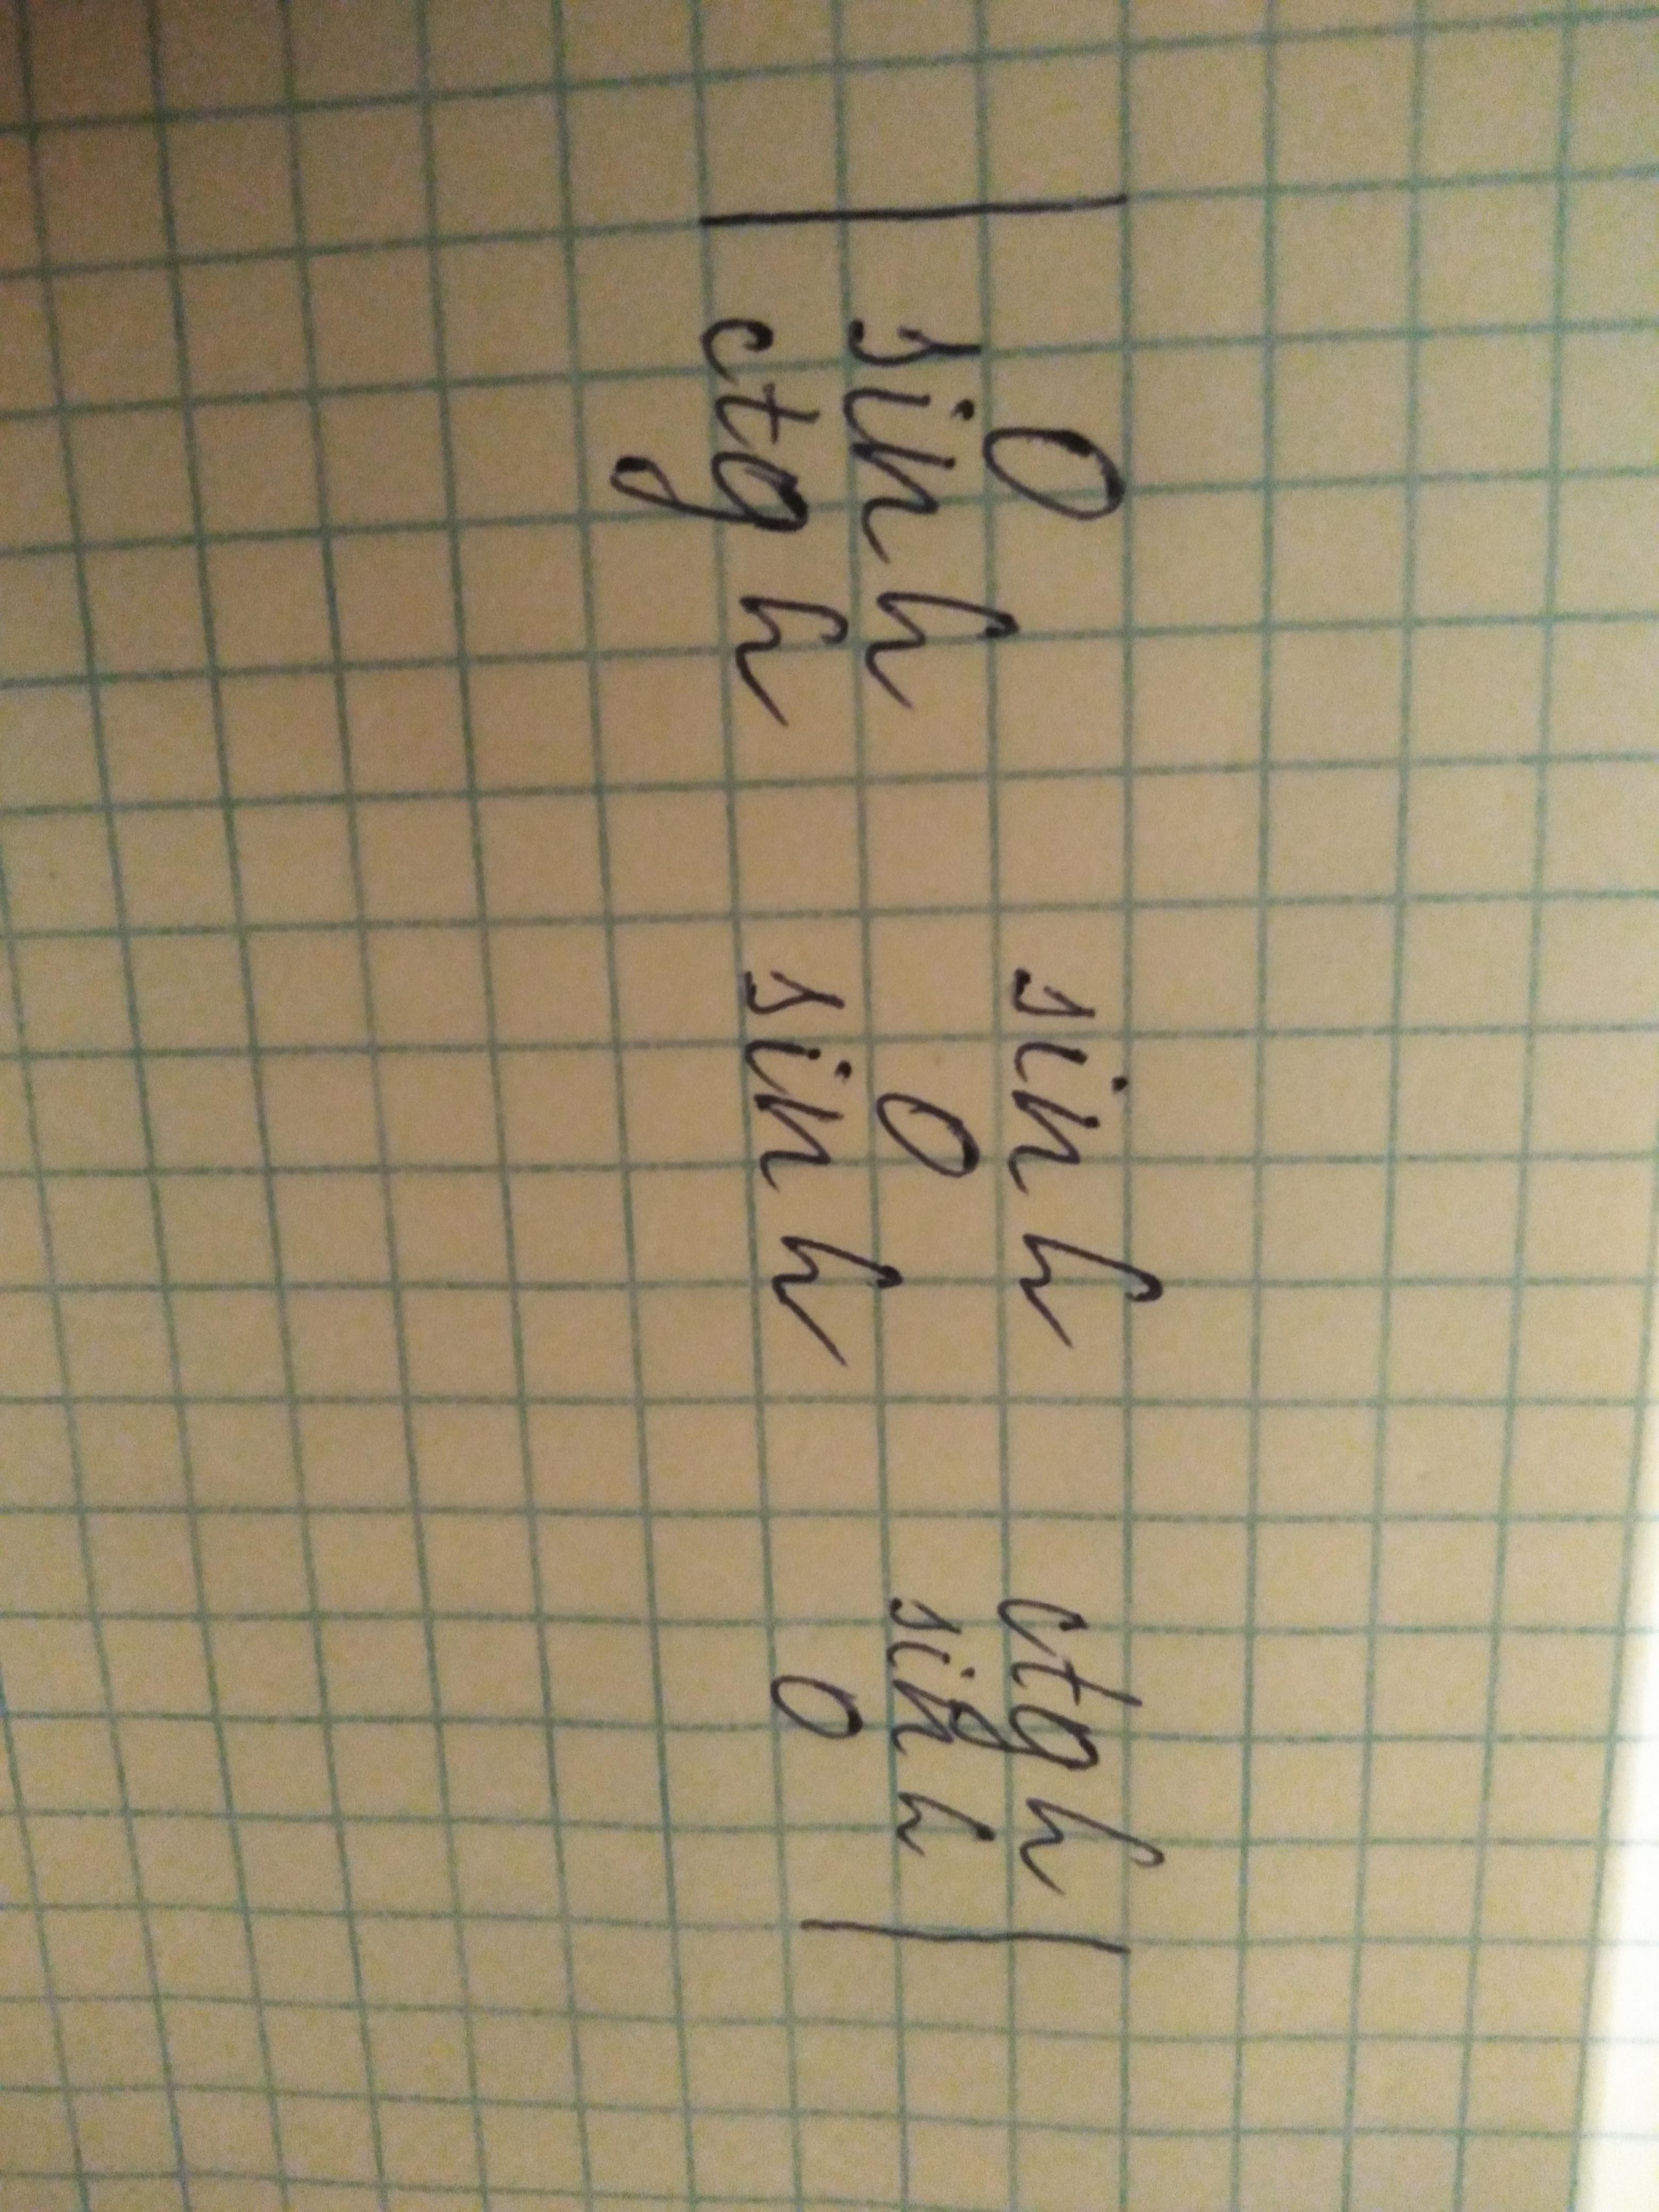 | 0 sin h ctg h |
sin h 0 sin h
ctg h sin h 0